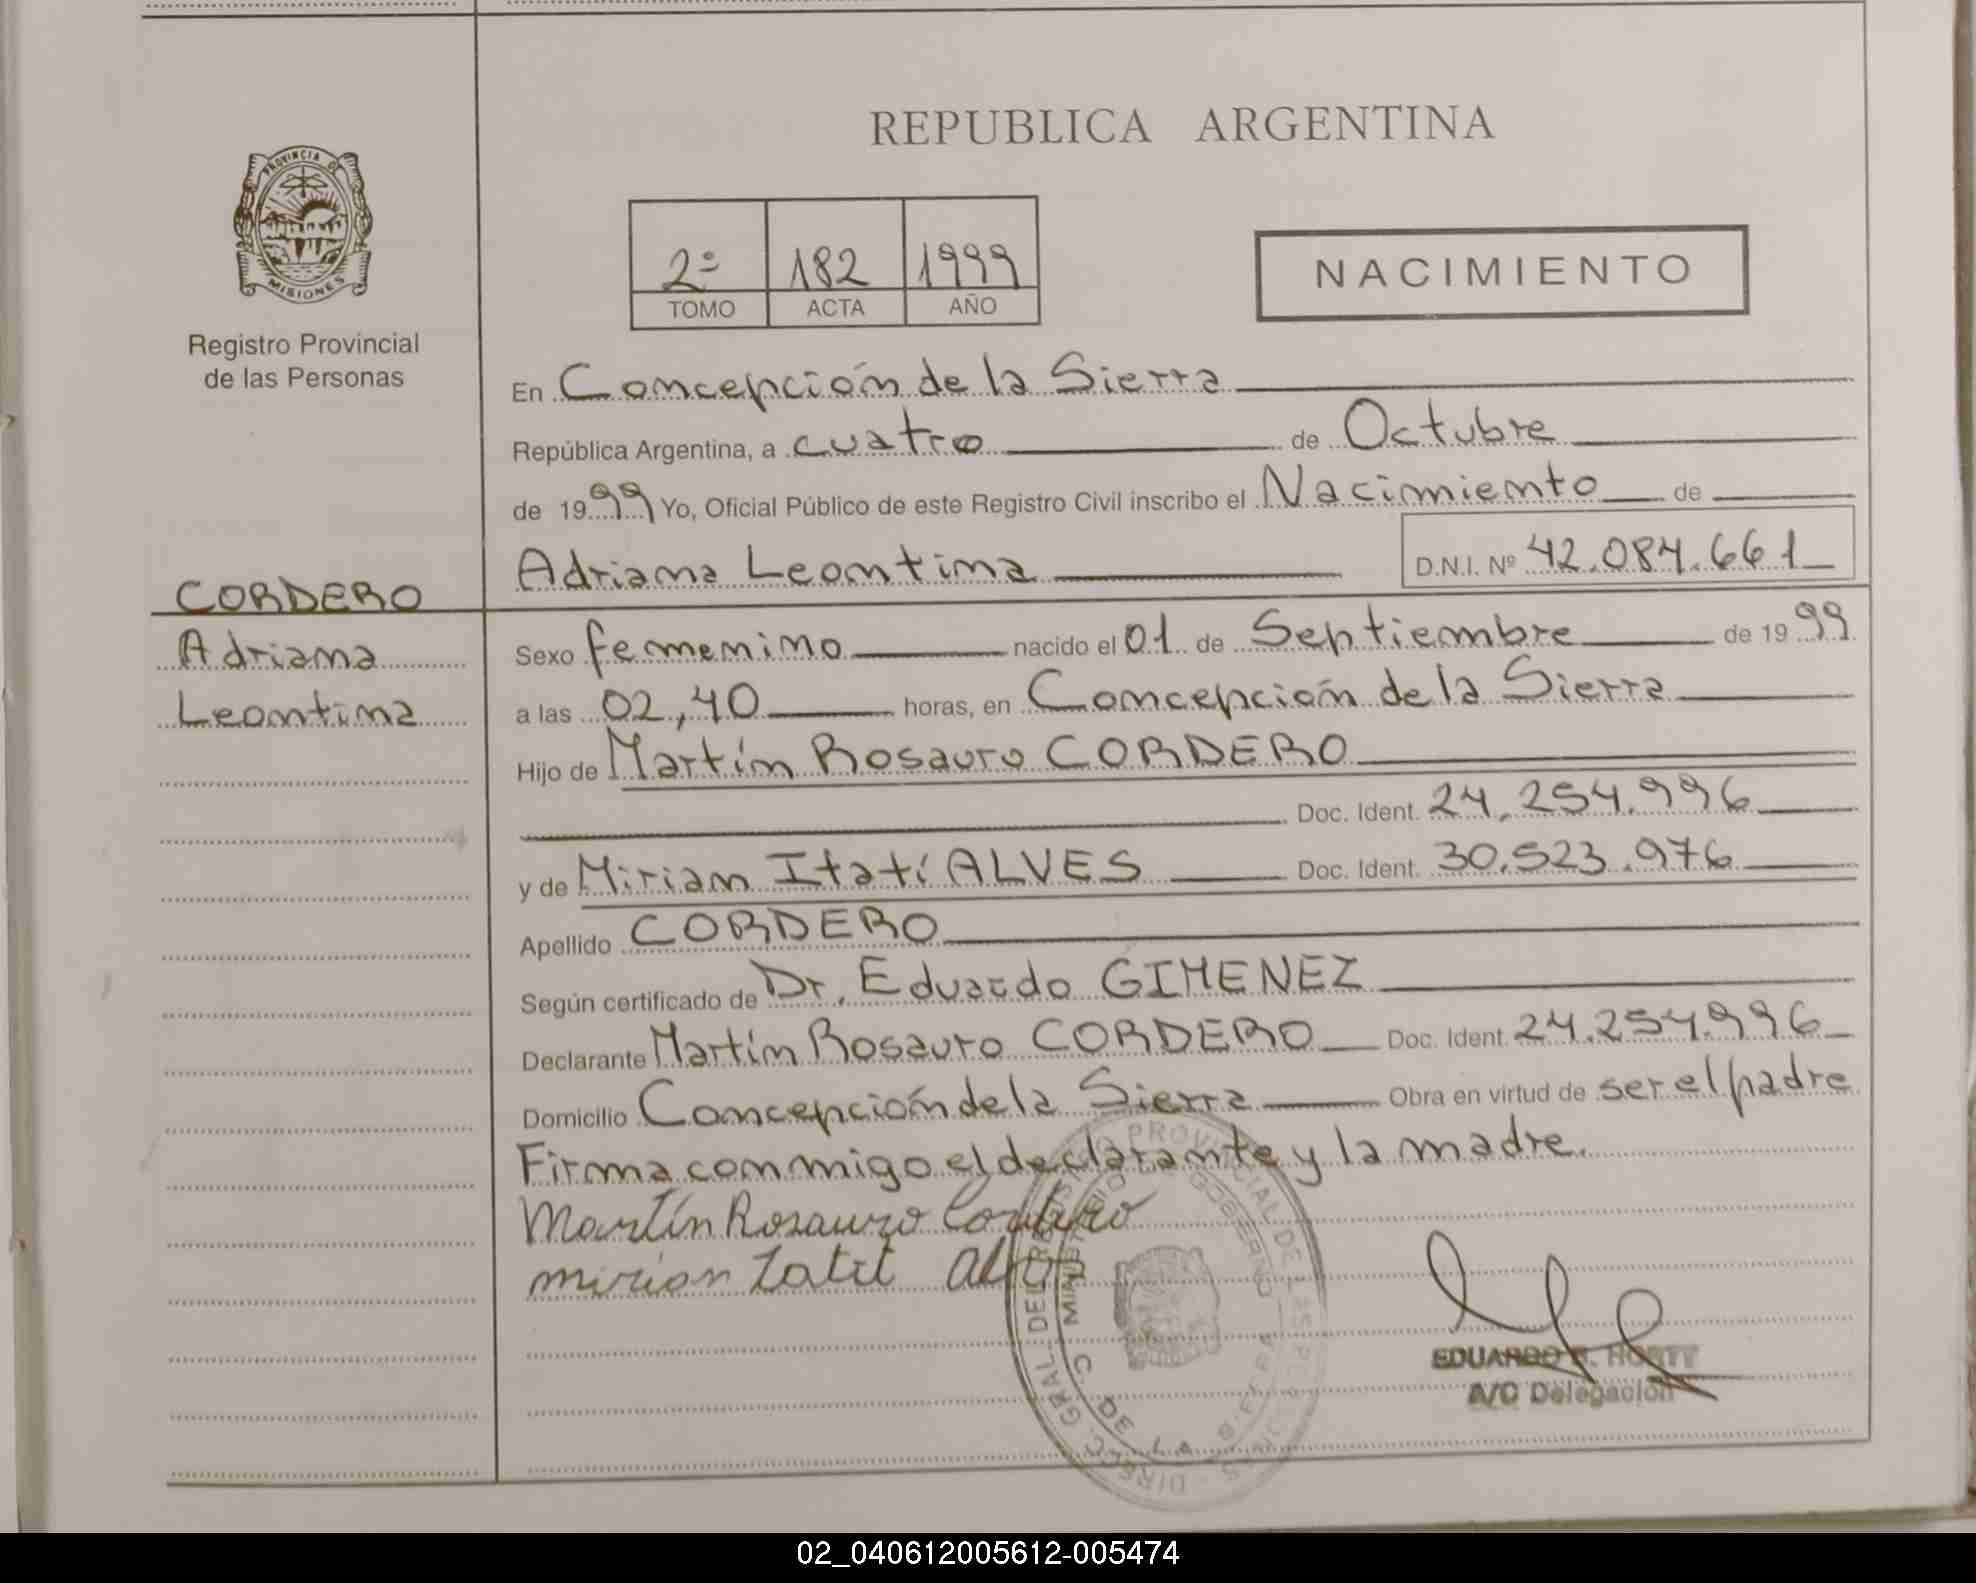 REPUBLICA ARGENTINA
PROVINCIA DE
MISIONES
Registro Provincial
de las Personas
2º 182 1999
TOMO ACTA AÑO
NACIMIENTO
En Concepción de la Sierra
República Argentina, a cuatro de Octubre
de 1999 Yo, Oficial Público de este Registro Civil inscribo el Nacimiento de
Adriana Leontina D.N.I. Nº 42.084.661
CORDERO
Adriana
Leontina
Sexo femenino nacido el 01 de Septiembre de 1999
a las 02,40 horas, en Concepción de la Sierra
Hijo de Martín Rosauro CORDERO
Doc. Ident. 24.254.996
y de Miriam Itatí ALVES Doc. Ident. 30.523.976
Apellido CORDERO
Según certificado de Dr. Eduardo GIMENEZ
Declarante Martín Rosauro CORDERO Doc. Ident. 24.254.996
Domicilio Concepción de la Sierra Obra en virtud de ser el padre
Firma conmigo el declarante y la madre.
Martín Rosauro Cordero
EDUARDO
A/C Delegación
02_040612005612-005474